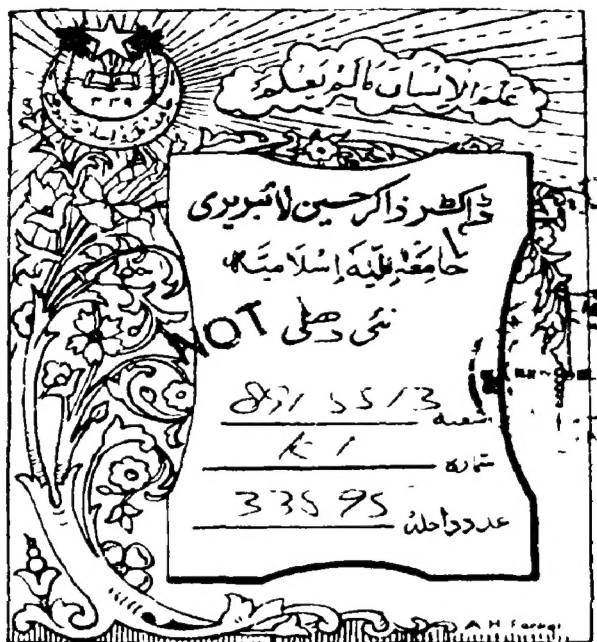 عَلَّمَ الْإِنْسَانَ مَا لَمْ يَعْلَمْ
ڈاکٹر ذاکر حسین لائبریری
جامعہ ملیہ اسلامیہ
نئی دہلی
NOT
شعبہ
شمارہ K1
عدد داخلہ 33595
A H Faruqi